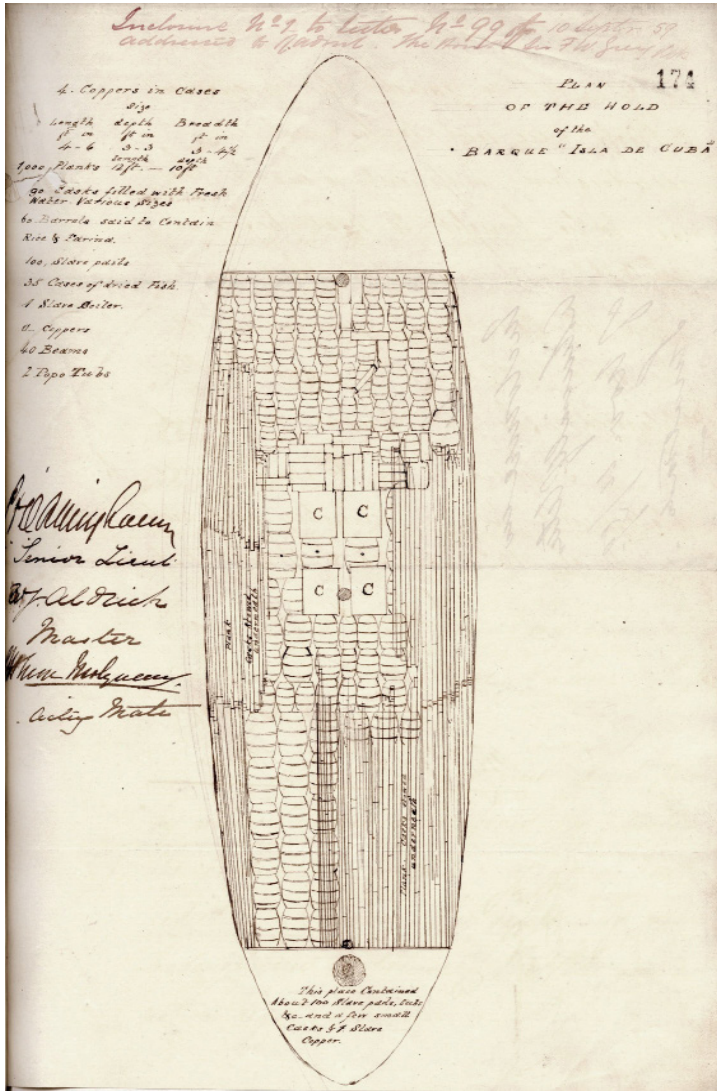 Inclosure No 9 to letter No 99 of 10 Septr 59
addressed to Admiral. The Honble Sir F W Grey
174
PLAN
OF THE HOLD
of the
BARQUE "ISLA DE CUBA"
4. Coppers in Cases
Size
Length depth Breadth
ft in ft in ft in
4-6 3-3 3-4½
length depth
1,000, Planks 12ft. — 10ft
90 Casks filled with Fresh
Water. Various Sizes
60. Barrels said to Contain
Rice & Farina.
100, Slave pails
35 Cases of dried Fish.
1 Slave Boiler.
Coppers
40 Beams
2 Topo Tubs
Senior Lieut
Aldrich
Master
Acting Mate
C C
C C
Plank
Casks Stowed
underneath
Plank. Casks Stowed
underneath
This place Contained
About 100 Slave pails, tubs
&c. and a few small
Casks & 1 Slave
Copper.